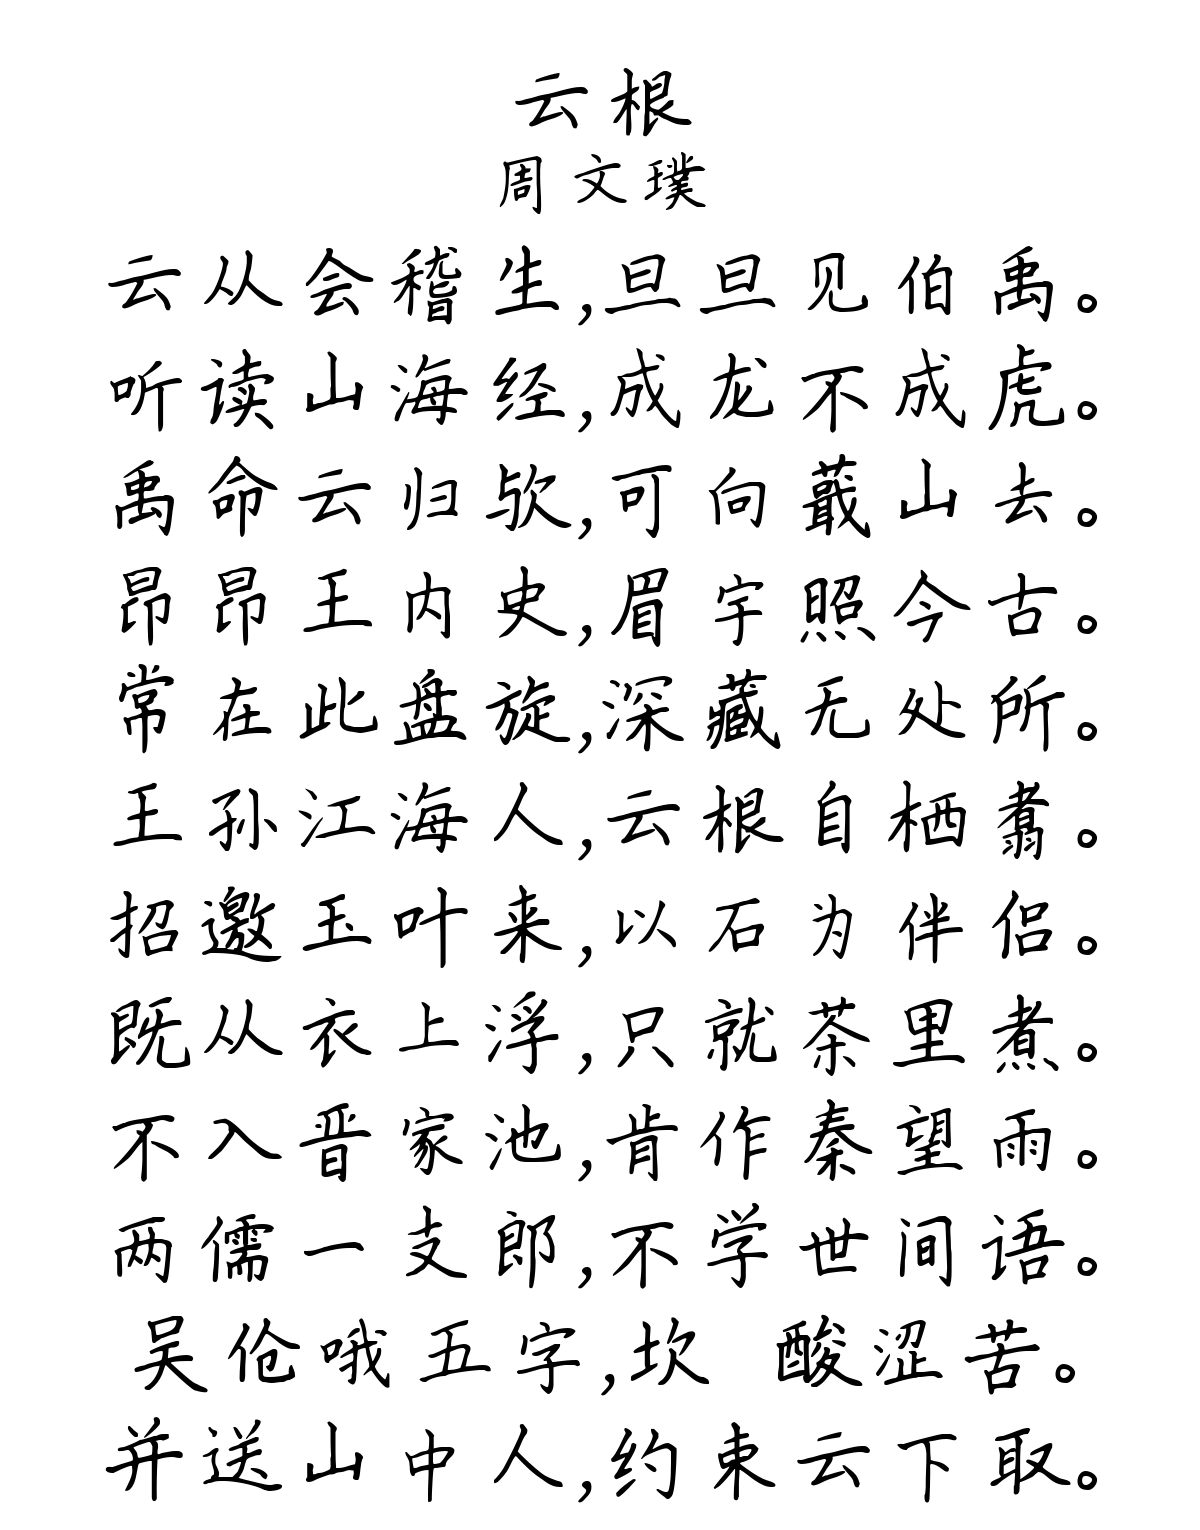 云根
周文璞
云从会稽生,旦旦见伯禹。
听读山海经,成龙不成虎。
禹命云归欤,可向蕺山去。
昂昂王内史,眉宇照今古。
常在此盘旋,深藏无处所。
王孙江海人,云根自栖翥。
招邀玉叶来,以石为伴侣。
既从衣上浮,只就茶里煮。
不入晋家池,肯作秦望雨。
两儒一支郎,不学世间语。
吴伧哦五字,坎 酸涩苦。
并送山中人,约束云下取。